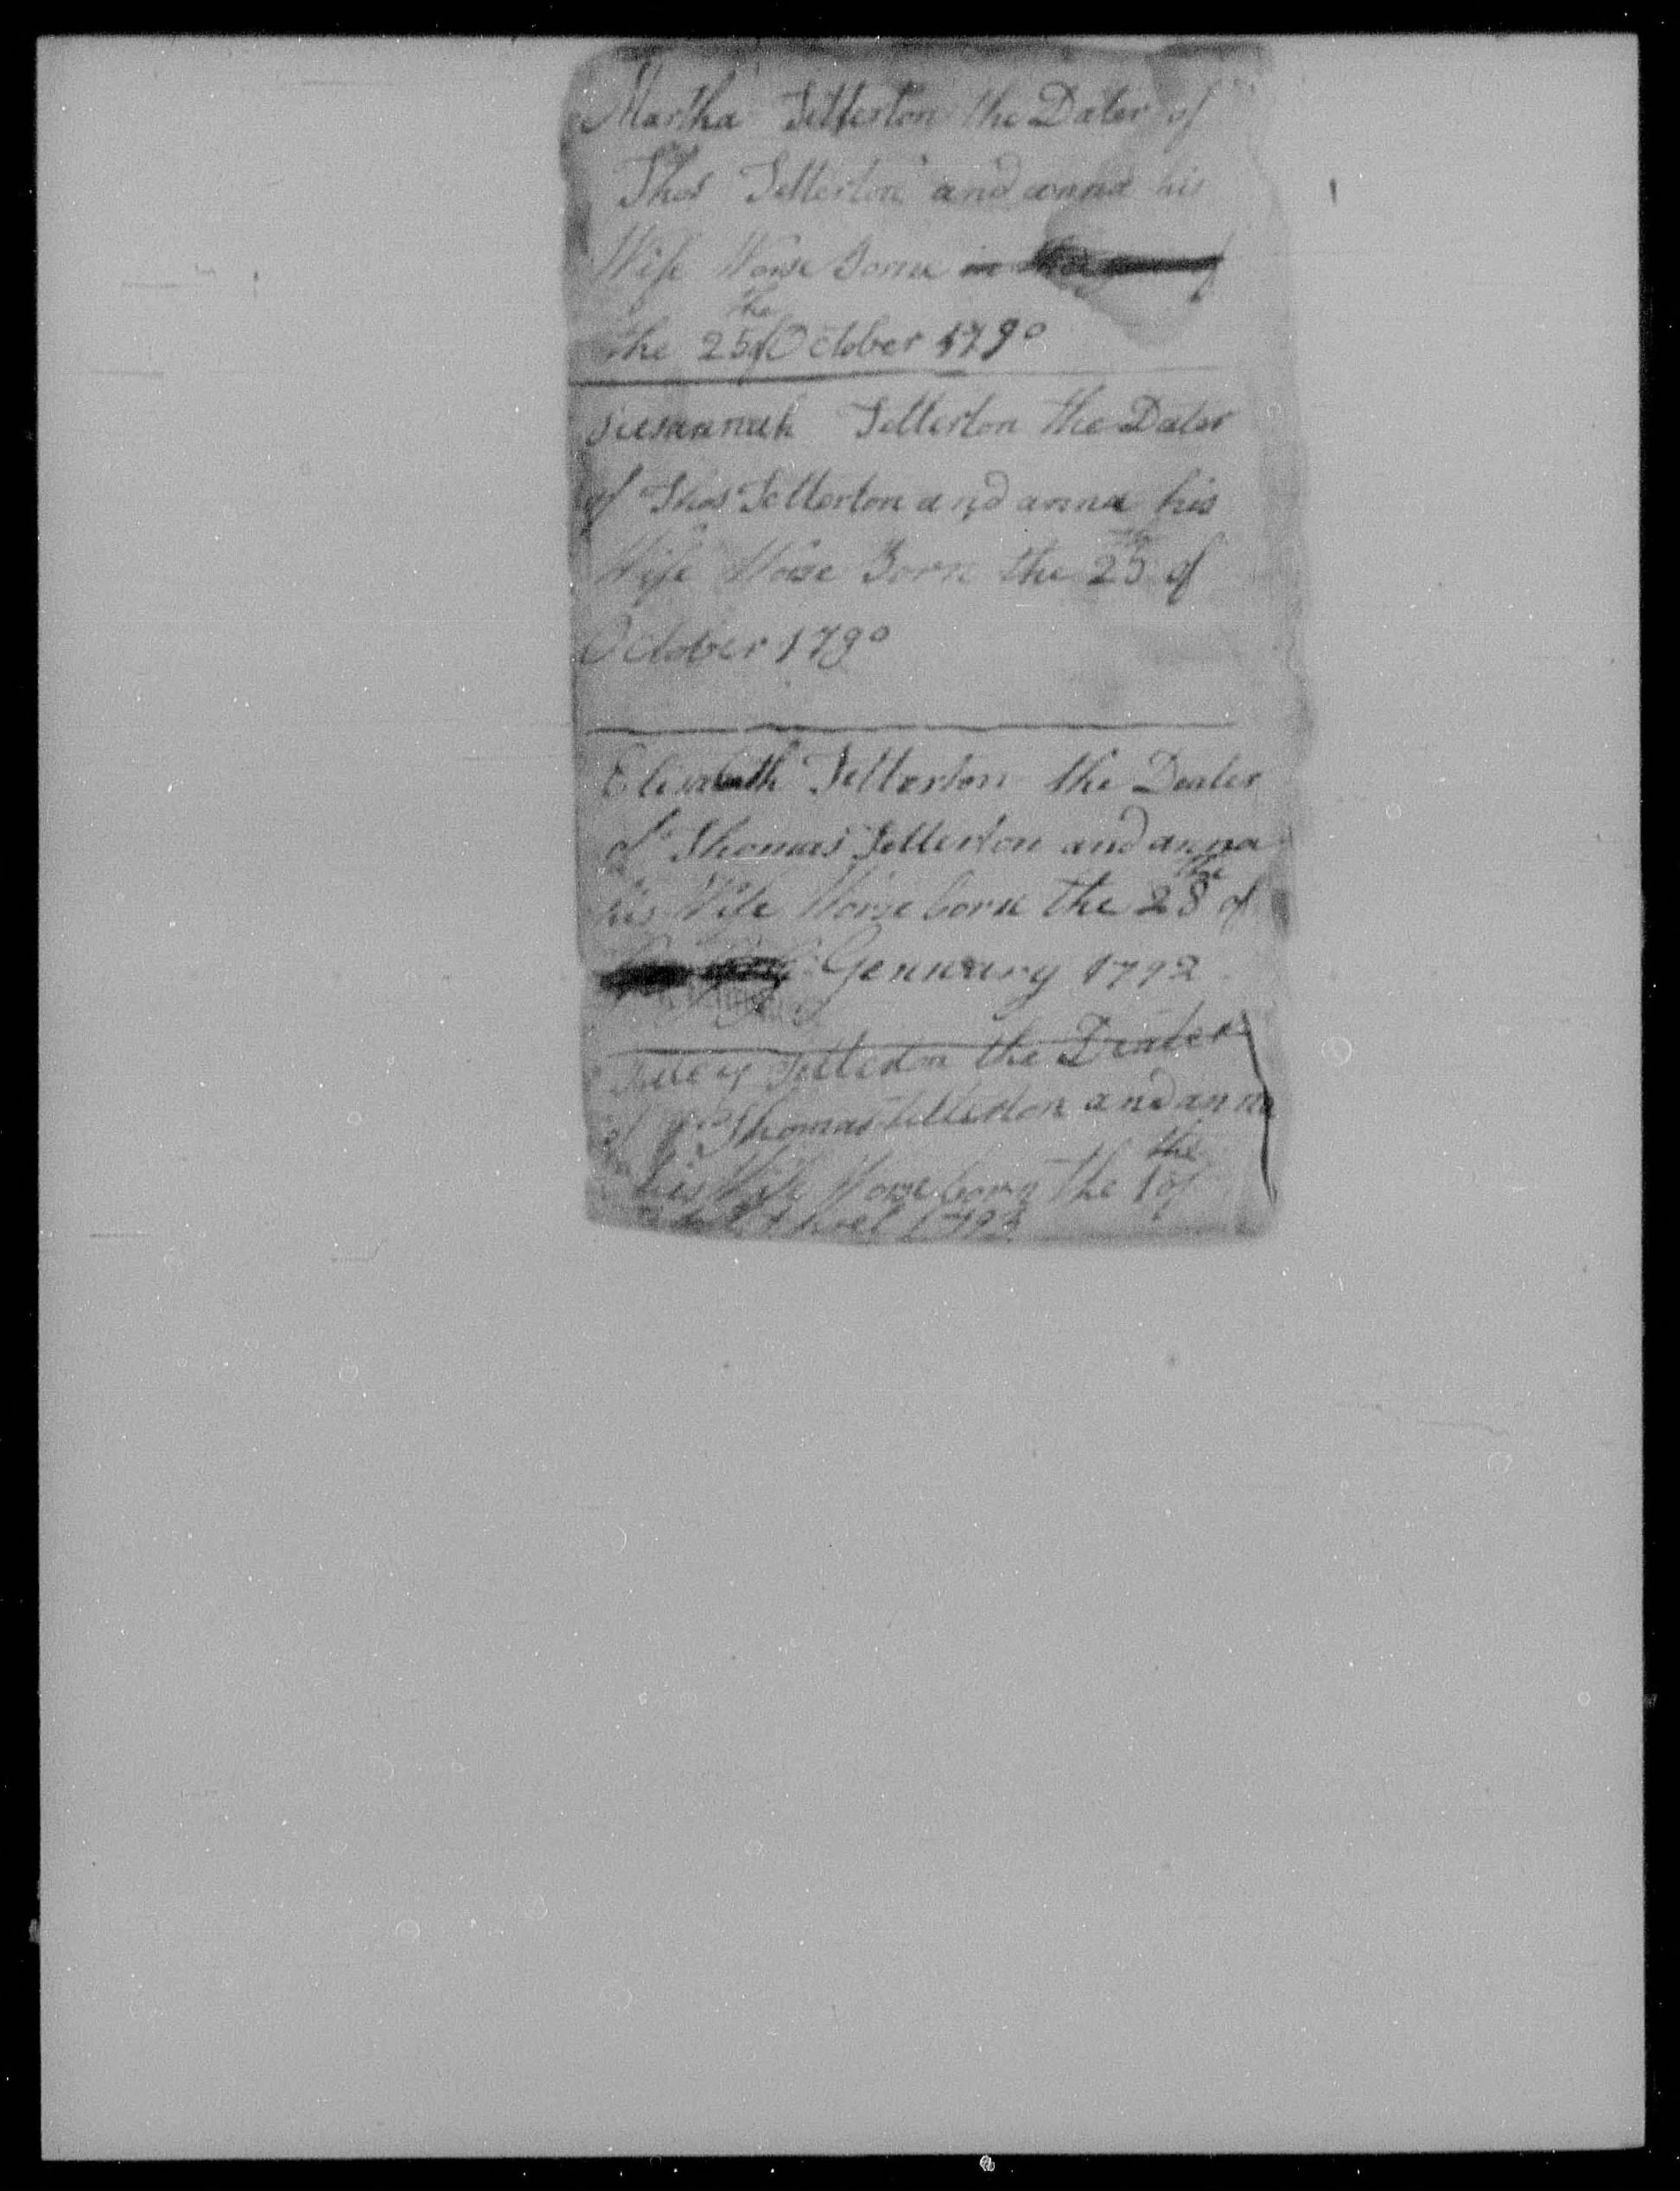 Martha Tetterton the Dater of
Thos Tetterton and anna his
Wife Wose Borne in
the
the 25 of October 1790
Susannah Tetterton the Dater
of Thos Tetterton and anna his
the
Wife Wose Born the 25 of
October 1790
Elisabeth Tetterton the Deater
of Thomas Tetterton and anna
the
his Wife Worse born the 28 of
Gennuary 1792
Tetterton the Deater
of Thomas Tetterton and anna
the
his Wife Worse born the 1 of
1793